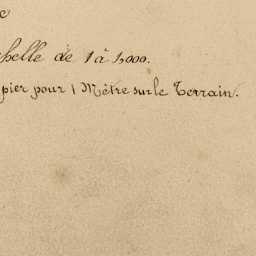 e
helle de 1 à 5,000.
pier pour 1 Mètre sur le Terrain.